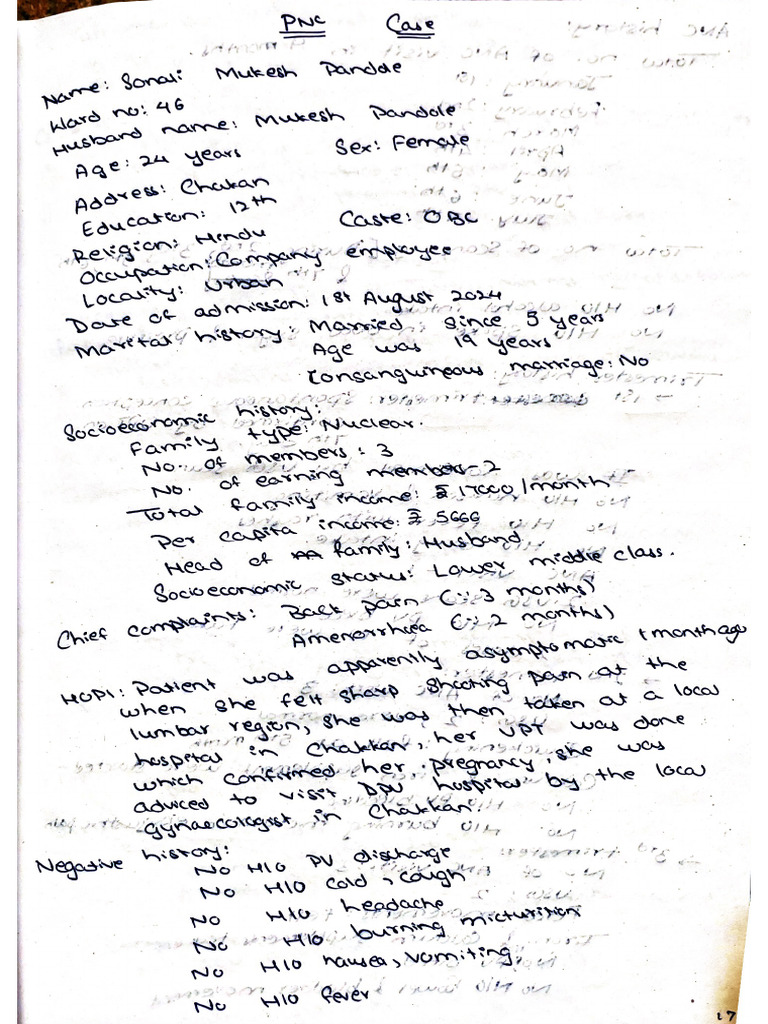 PNC Case
Name: Sonali Mukesh Pandole
Ward no: 46
Husband name: Mukesh Pandole
Age: 24 years Sex: Female
Address: Chakan
Education: 12th
Religion: Hindu Caste: OBC
Occupation: Company employee
Locality: Urban
Date of admission: 1st August 2024
Marital history: Married since 5 years
Age was 19 years
Consanguineous marriage: No
Socioeconomic history:
Family type: Nuclear.
No. of members: 3
No. of earning members - 2
Total family income: ₹ 17000/month
Per capita income: ₹ 5666
Head of family: Husband
Socioeconomic status: Lower middle class.
Chief complaints: Back pain (∵ 3 months)
Amenorrhoea (∵ 2 months)
HOPI: Patient was apparently asymptomatic 1 month ago
when she felt sharp shooting pain at the
lumbar region, she was then taken at a local
hospital in Chakkan, her UPT was done
which confirmed her pregnancy, she was
adviced to visit DPU hospital by the local
gynaecologist in Chakkan.
Negative history:
No H/O PV discharge
No H/O cold, cough
No H/O headache
No H/O burning micturition
No H/O nausea, vomiting
No H/O fever
17